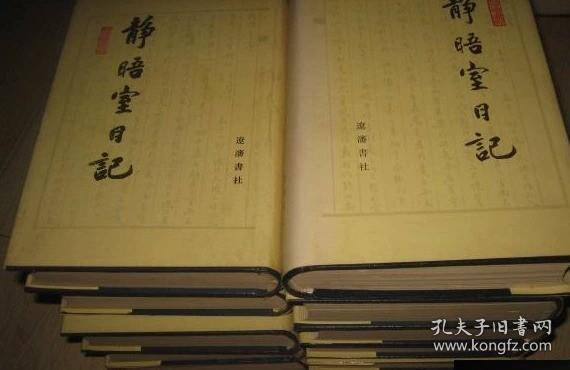 靜晤室日記
遼瀋書社
靜晤室日記
遼瀋書社
孔夫子旧书网
www.kongfz.com